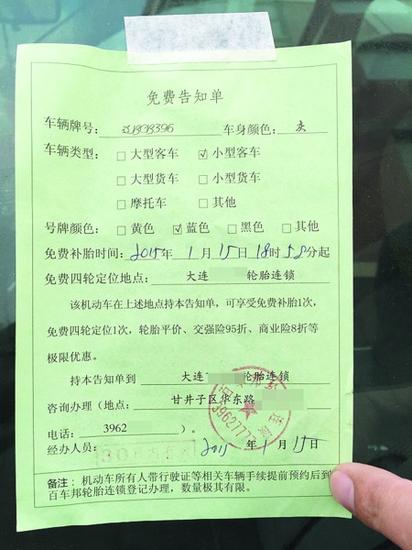 免费告知单
车辆牌号: 辽B08396 车身颜色: 灰
车辆类型: □大型客车 ☑小型客车
□大型货车 □小型货车
□摩托车 □其他
号牌颜色: □黄色 ☑蓝色 □黑色 □其他
免费补胎时间: 2015年 1 月 15日 18时 58分起
免费四轮定位地点: 大连 轮胎连锁
该机动车在上述地点持本告知单,可享受免费补胎1次,
免费四轮定位1次,轮胎平价、交强险95折、商业险8折等
极限优惠。
持本告知单到 大连 轮胎连锁
咨询办理(地点: 甘井子区华东路
电话: 3962 )。
经办人员:
2015 年 1 月 15日
备注: 机动车所有人带行驶证等相关车辆手续提前预约后到
百车邦轮胎连锁登记办理,数量极其有限。